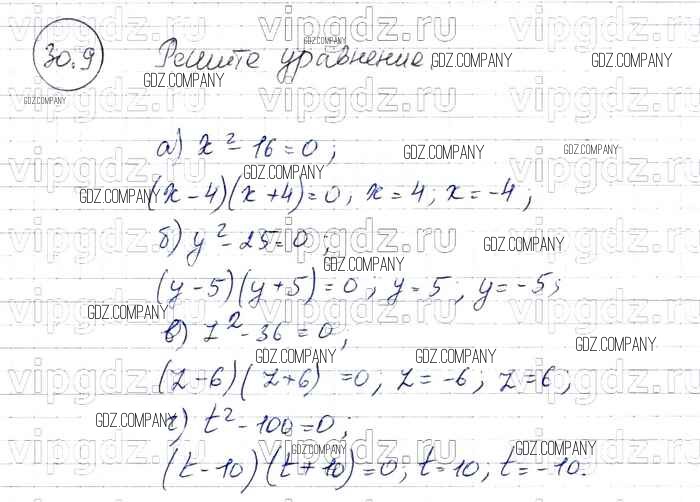 30.9 Решите уравнение.
а) x² - 16 = 0;
(x - 4)(x + 4) = 0; x = 4; x = -4;
б) y² - 25 = 0;
(y - 5)(y + 5) = 0; y = 5; y = -5;
в) z² - 36 = 0;
(z - 6)(z + 6) = 0; z = -6; z = 6;
г) t² - 100 = 0;
(t - 10)(t + 10) = 0; t = 10; t = -10.
vipgdz.ru
GDZ.COMPANY